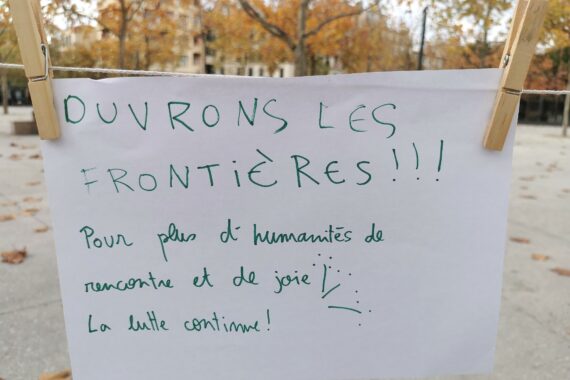 OUVRONS LES
FRONTIÈRES!!!
Pour plus d'humanités de
rencontre et de joie!
La lutte continue!